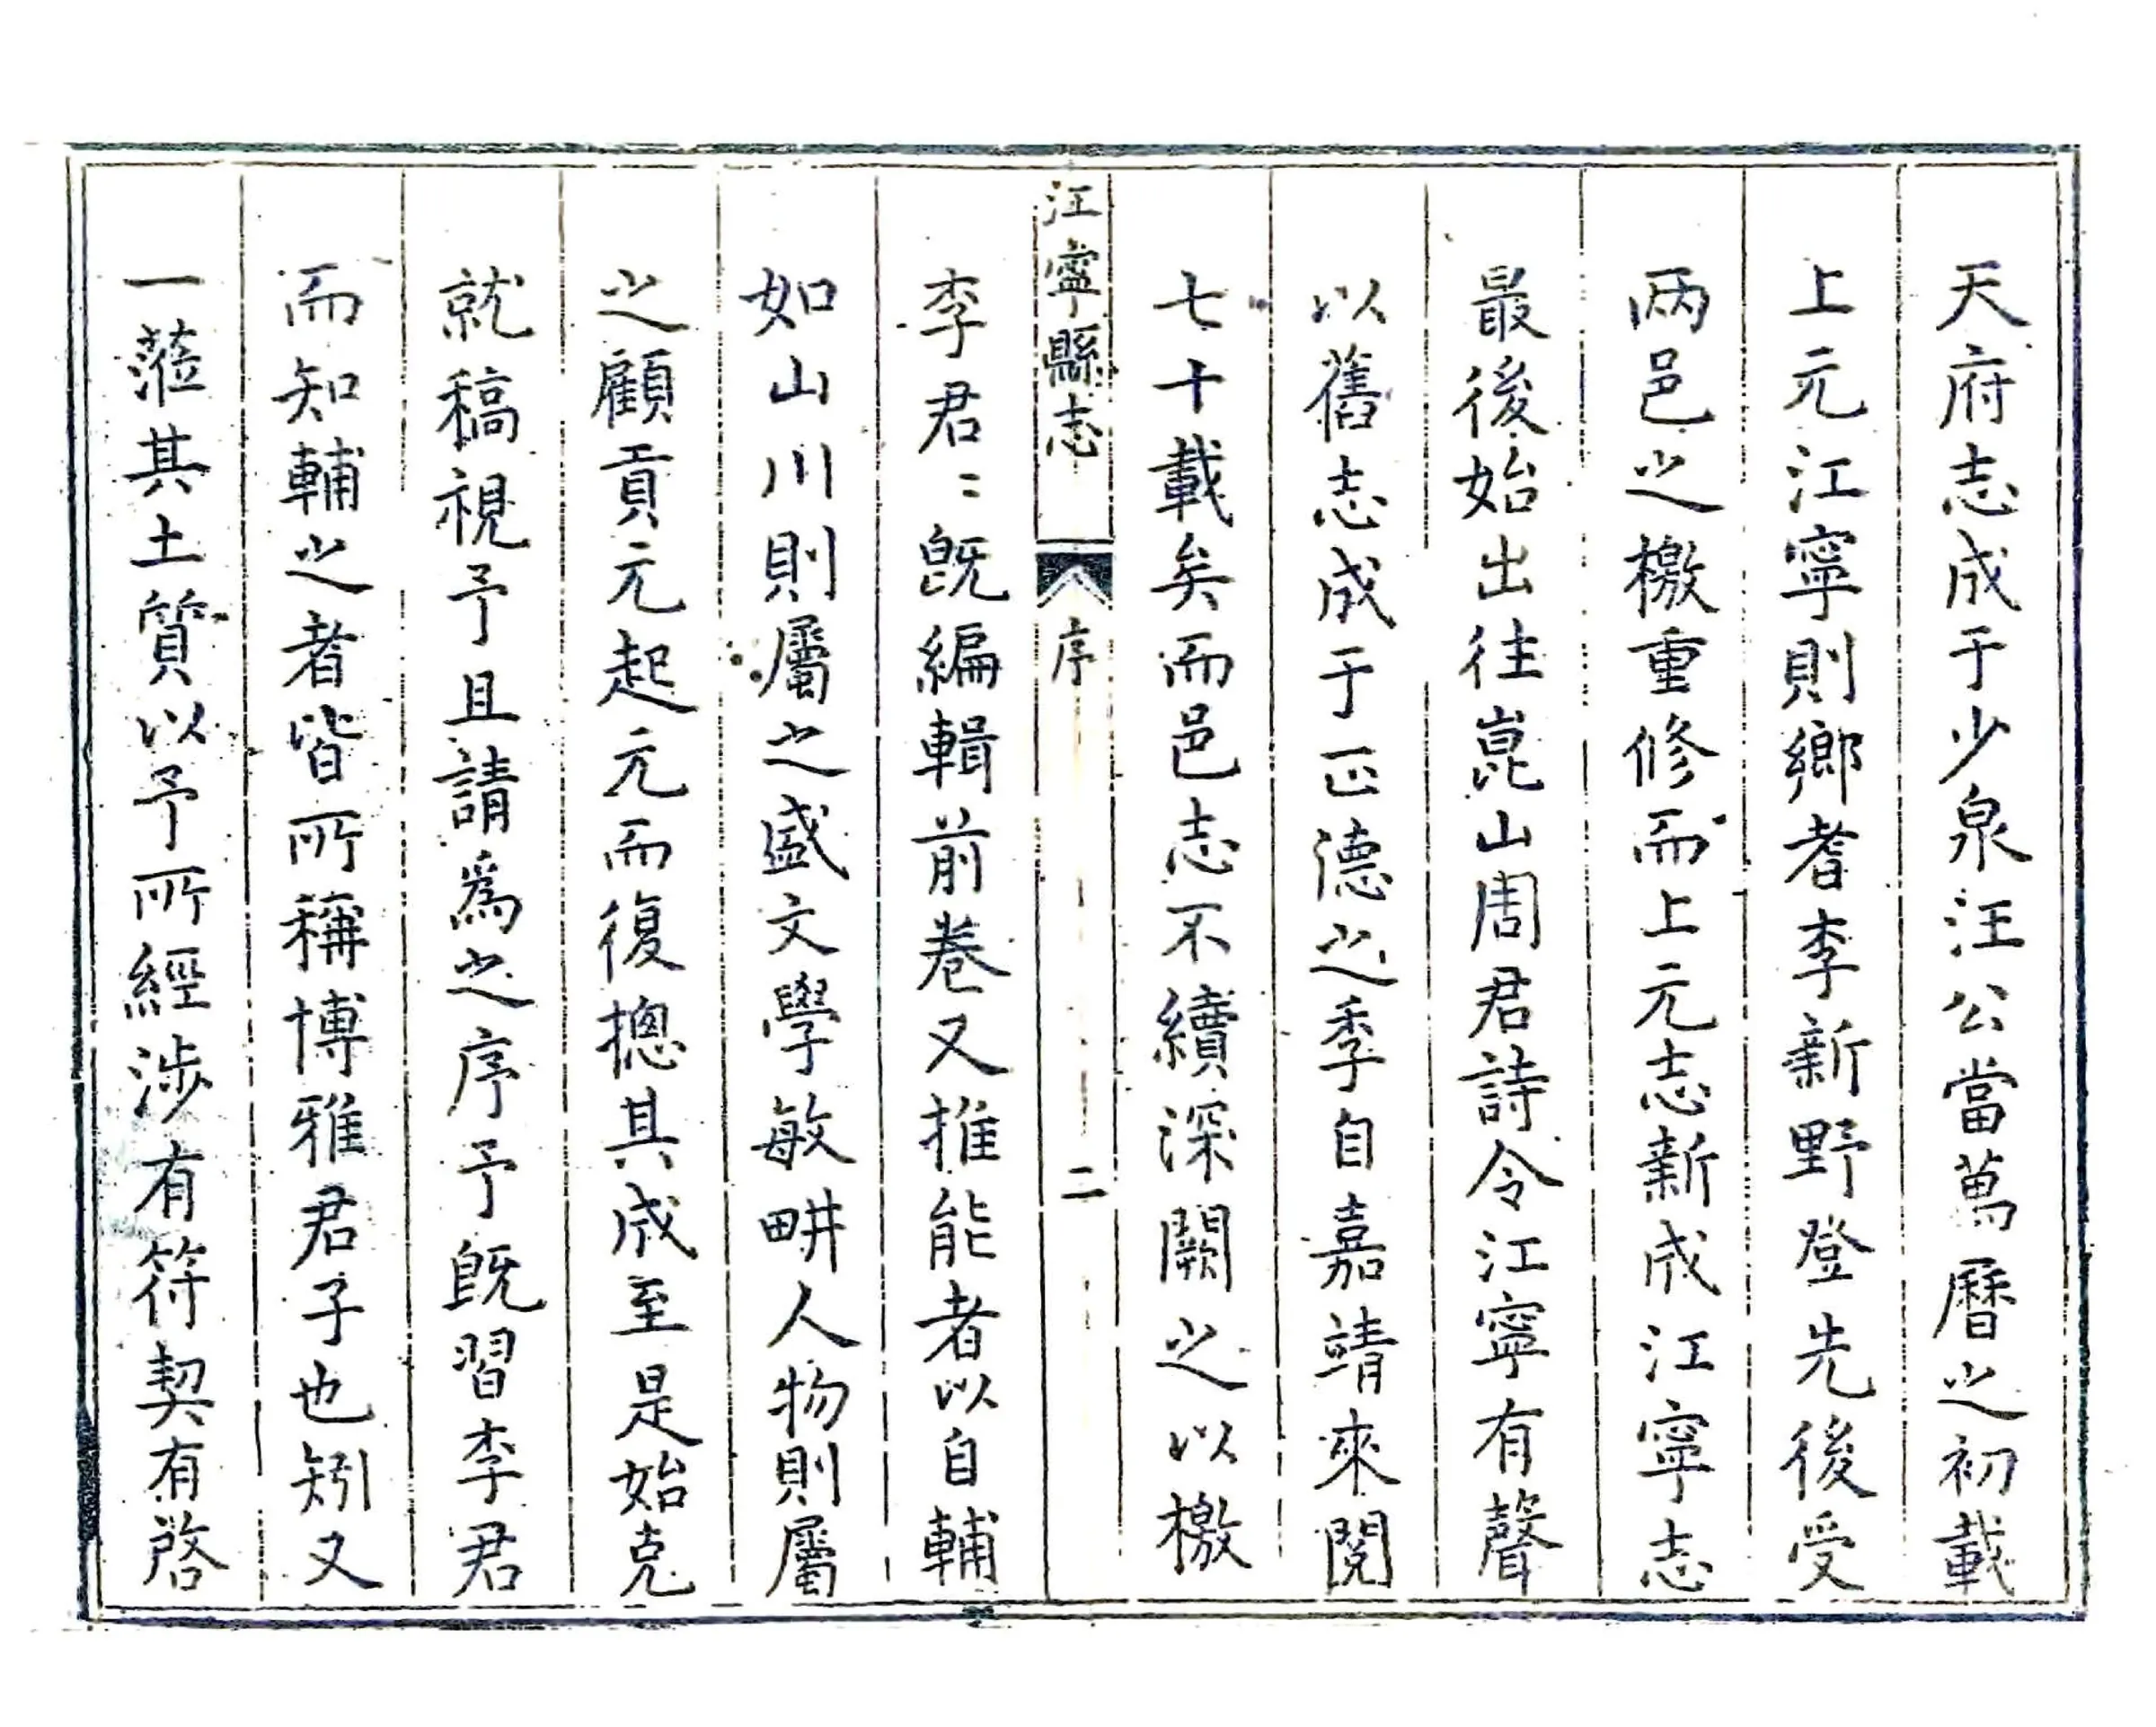 天府志成于少泉汪公當萬曆之初載
上元江寧則鄉耆李新野登先後受
兩邑之檄重修而上元志新成江寧志
最後始出往崑山周君詩令江寧有聲
以舊志成于正德之季自嘉靖來閱
七十載矣而邑志不續深闕之以檄
江寧縣志
序
二
李君〻既編輯前卷又推能者以自輔
如山川則屬之盛文學敏畊人物則屬
之顧貢元起元而復摠其成至是始克
就稿視予且請為之序予既習李君
而知輔之者皆所稱博雅君子也矧又
一蒞其土質以予所經涉有符契有啓